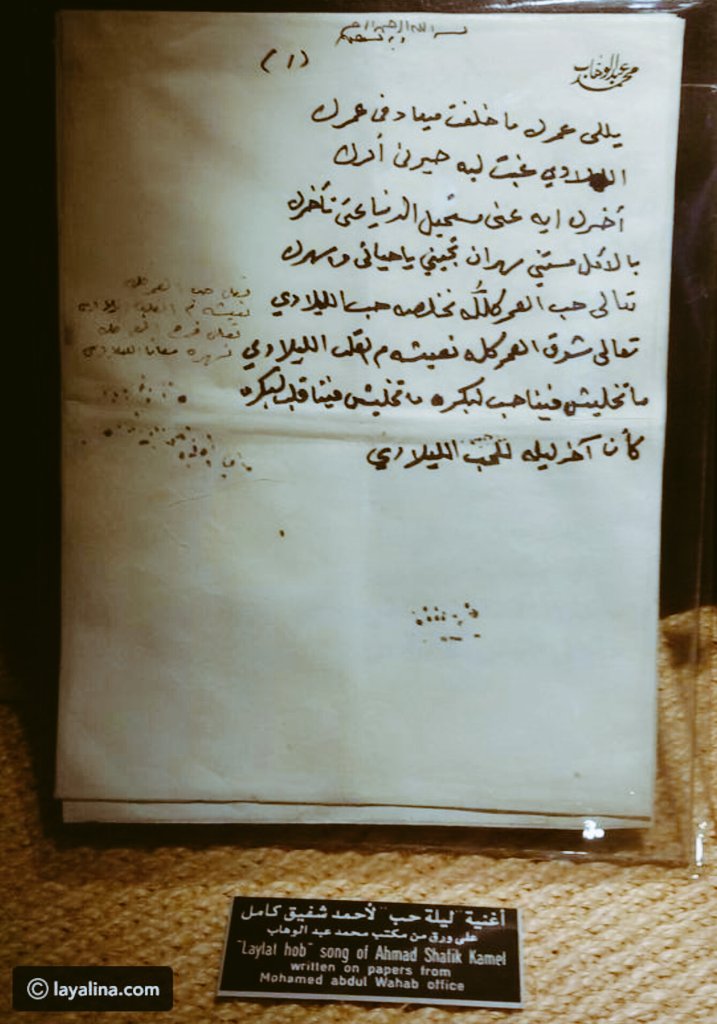 بسم الله الرحمن الرحيم
(١)
محمد عبد الوهاب
يللى عمرك ما خلفت ميعاد فى عمرك
الليلادي غبت ليه حيرنى أمرك
أخرك ايه عنى مستحيل الدنيا عنى تأخرك
بالأمل مستني سهران تجيني يا حياتى واسهرك
تعالى حب العمر كله نخلصه حب الليلادي
تعالى شوق العمر كله نعيشه م القلب الليلادي
ما تخليش فينا حب لبكره ما تخليش فينا قلب لبكره
كأن آخر ليله للحب الليلادي
نعيشه م القلب
الليلادي
أغنية "ليلة حب" لأحمد شفيق كامل
على ورق من مكتب محمد عبد الوهاب
"Laylat hob" song of Ahmad Shafik Kamel
written on papers from
Mohamed abdul Wahab office
© layalina.com